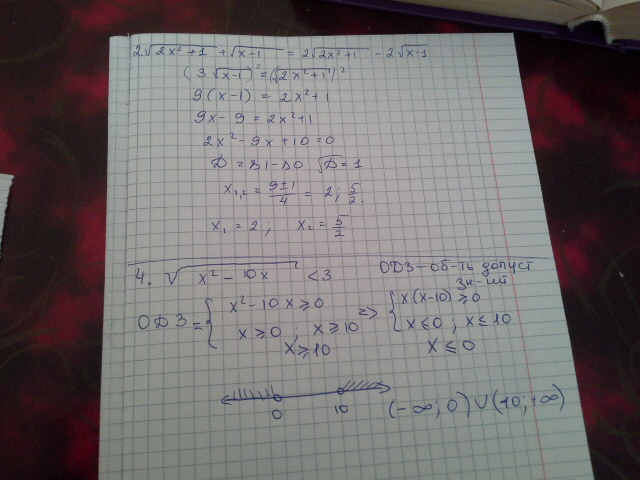 2√(2x²+1) + √(x-1) = 2√(2x²+1) - 2√(x-1)
(3√(x-1))² = (√(2x²+1))²
9(x-1) = 2x²+1
9x - 9 = 2x²+1
2x² - 9x + 10 = 0
D = 81-80 √D = 1
x₁,₂ = (9±1)/4 = 2; 5/2.
x₁ = 2; x₂ = 5/2
4. √(x² - 10x) < 3 ОДЗ-об-ть допуст
зн-ий
ОДЗ = { x² - 10x ≥ 0 => { x(x-10) ≥ 0
x ≥ 0 ; x ≥ 10 x ≤ 0 ; x ≤ 10
x ≥ 10 x ≤ 0
0 10 (-∞; 0) ∪ (10; +∞)